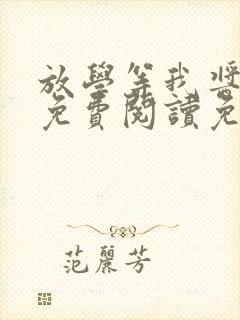 放學等我 將
免費閱讀免
范麗芳